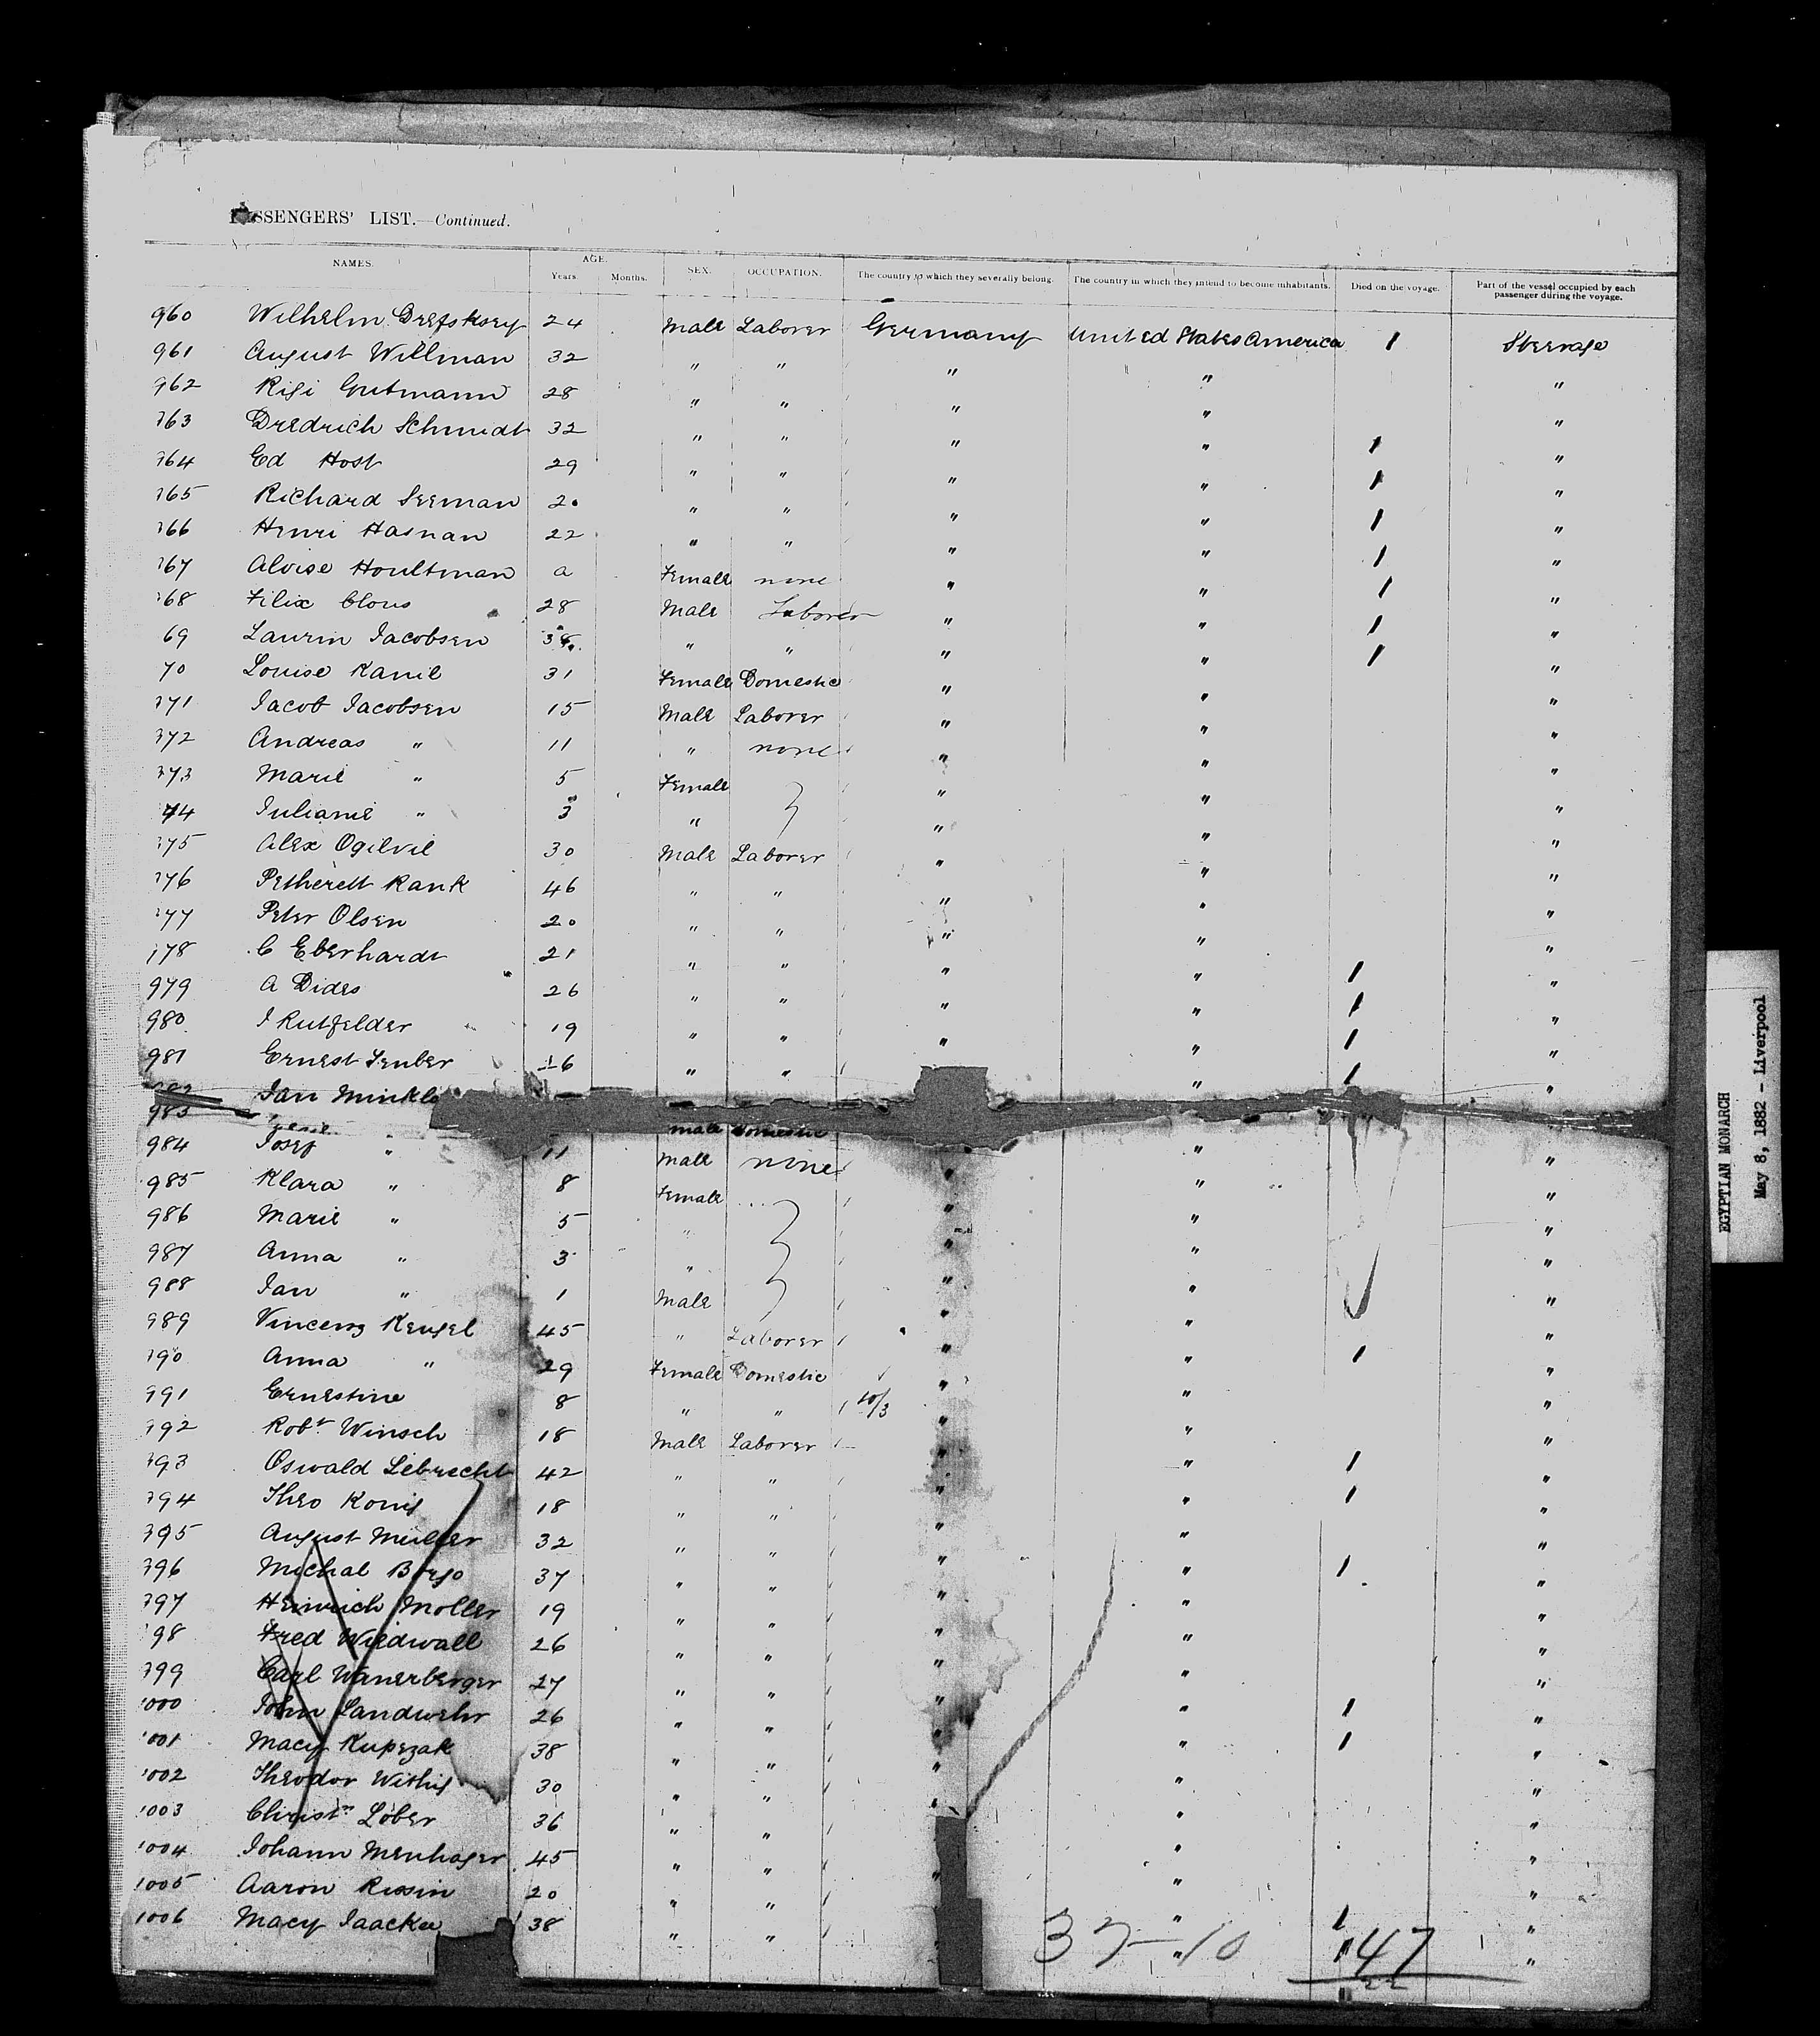 PASSENGERS' LIST.—Continued.
NAMES. AGE. Years. Months. SEX. OCCUPATION. The country to which they severally belong. The country in which they intend to become inhabitants. Died on the voyage. Part of the vessel occupied by each passenger during the voyage.
960 Wilhelm 24 Male Laborer Germany United States America 1 Steerage
961 August Willman 32 " " " " "
962 Gutmann 28 " " " " "
963 Schmidt 32 " " " " 1 "
964 Ed Host 29 " " " " 1 "
965 Richard Seeman 20 " " " " 1 "
966 Henri Hasnan 22 " " " " 1 "
967 Aloise Houltman a Female none " " 1 "
968 Felix Clous 28 Male Laborer " " 1 "
69 Laurin Jacobsen " " " " 1 "
70 Louise Kanil 31 Female Domestic " " "
971 Jacob Jacobsen 15 Male Laborer " " "
972 Andreas " 11 " none " " "
973 Marie " 5 Female " " "
74 Juliane " 3 " " " "
975 Alex Ogilvie 30 Male Laborer " " "
976 Rank 46 " " " " "
977 Peter Olsen 20 " " " " "
978 C Eberhardt 21 " " " " 1 "
979 A Dides 26 " " " " 1 "
980 J Rutfelder 19 " " " " 1 "
981 Ernest 16 " " " 1 "
982 Jan Minkl
983 male Domestic
984 Josef " 11 Male none " " "
985 Klara " 8 Female " " "
986 Marie " 5 " " " "
987 Anna " 3 " " " "
988 Jan " 1 Male " " "
989 Vincenz Kengel 45 " Laborer " " "
990 Anna " 29 Female Domestic " " 1 "
991 Ernestine 8 " " 10/3 " " "
992 Robt Winsch 18 Male Laborer " " "
993 Oswald Lebrecht 42 " " " " 1 "
994 Theo Konig 18 " " " " 1 "
995 August Muller 32 " " " " "
996 Michal 37 " " " " 1 "
997 Heinrich Moller 19 " " " " "
98 Fred Wildwall 26 " " " " "
999 Carl Wanerberger 27 " " " " "
1000 John Landwehr 26 " " " " 1 "
1001 Macy Kupezak 38 " " " " 1 "
1002 Theodor Withig 30 " " " " "
1003 Christn Lober 36 " " " " "
1004 Johann Menhager 45 " " " " "
1005 Aaron Rissin 20 " " " " "
1006 Macy Jaacke 38 " " " " 1 "
37-10 147
22
EGYPTIAN MONARCH
May 8, 1882 - Liverpool